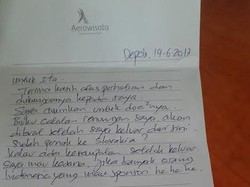 Aerowisata
Depok, 19-6-2012
Untuk Ita
Terima kasih atas perhatian dan
dukungannya kepada saya
Saya doakan untuk doa²nya.
Buku catatan renungan saya akan
dibuat setelah saya keluar dari sini.
Sudah pernah ke Slovakia?
Kalau ada kesempatan setelah keluar
saya mau kesana, jika banyak orang
Indonesia yang mau sponsor he he he.